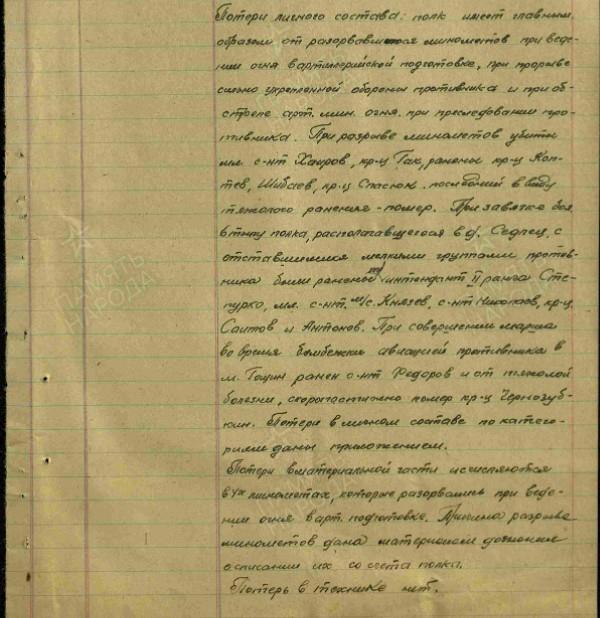 Потери личного состава: полк имеет главным
образом от разорвавшихся минометов при веде-
нии огня в артиллерийской подготовке, при прорыве
сильно укрепленной обороны противника и при об-
стреле арт. мин. огня при преследовании про-
тивника. При разрыве минометов убиты
мл. с-нт Хаиров, кр-ц Гак, ранены кр-ц Коп-
тев, Шибаев, кр-ц Спасюк. последний в виду
тяжолого ранения - помер. При завязке боя
в тылу полка, располагавшегося в д. Седлец, с
отставшимися мелкими группами против-
ника были ранены интендант II ранга Сте-
пурко, мл. с-нт м/с. Князев, с-нт Николаев, кр-ц
Саитов и Антонов. При совершении марша
во время бомбежки авиацией противника в
м. Гощин ранен с-нт Федоров и от тяжолой
болезни, скоропостижно помер кр-ц Чернозуб-
кин. Потери в личном составе по катего-
риям даны приложением.
Потери в материальной части исчисляются
в 4х минометах, которые разорвались при веде-
нии огня в арт. подготовке. Причина разрыва
минометов дана материалом дознания
о списании их со счета полка.
Потерь в технике нет.
ПАМЯТЬ
НАРОДА